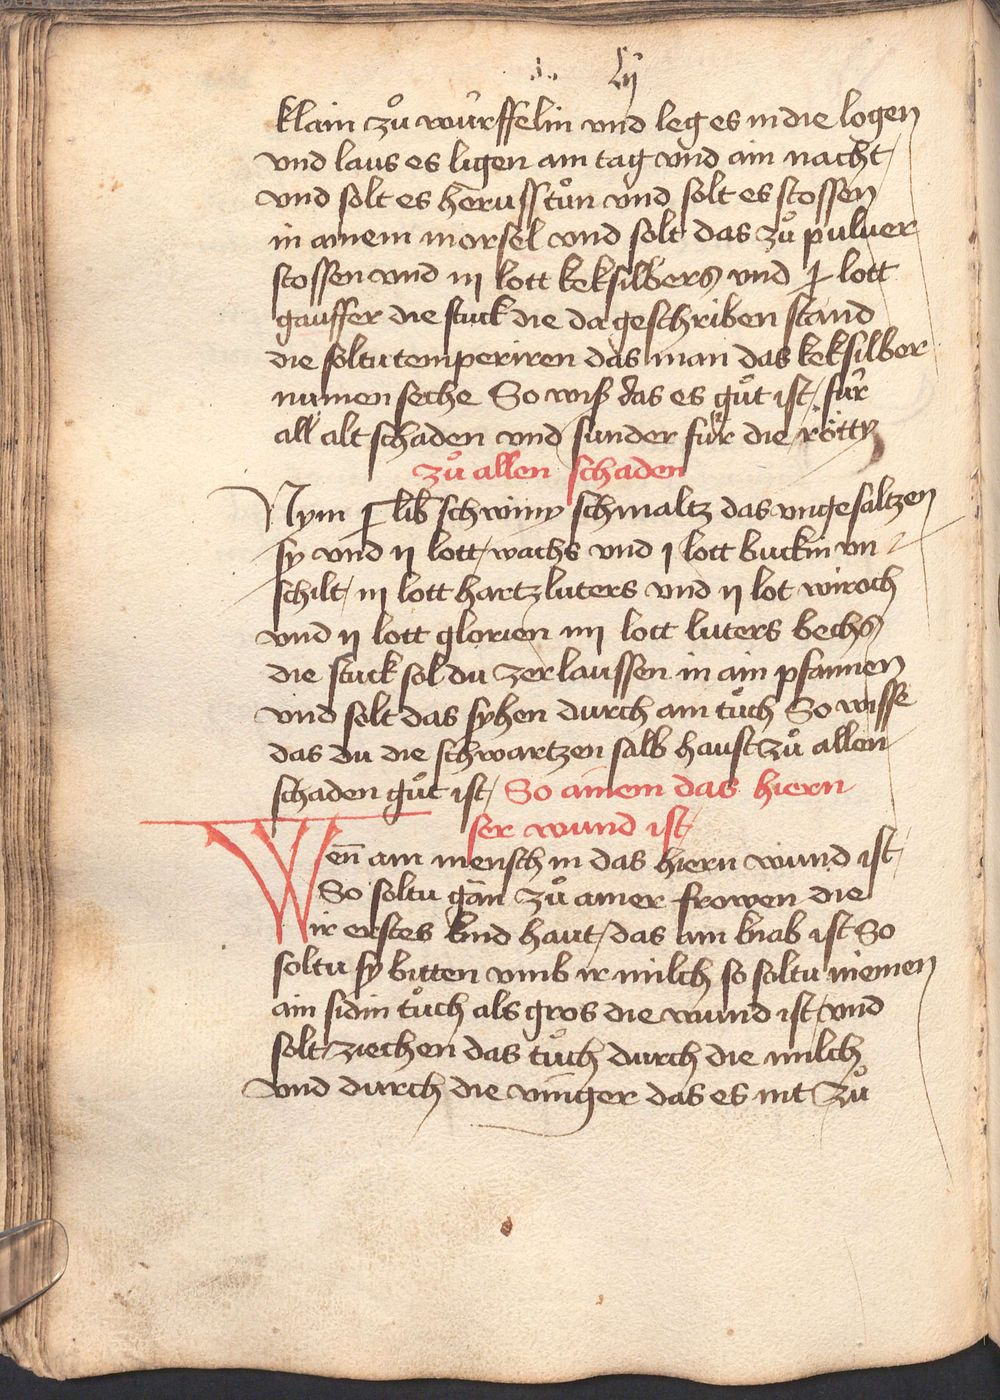 Lij
klain zuͦ wúrffelin vnd leg es in die logen
vnd laus es ligen ain tag vnd ain nacht
vnd solt es heruss tuͦn vnd solt es stossen
in ainem morsel vnd solt das zuͦ puluer
stossen vnd iij lott keksilbers vnd j lott
gauffer die stuck die da geschriben stand
die soltu temperiren das man das keksilber
numen seche So wiß das es guͦt ist fúr
all alt schaden vnd sunder fúr die rötty
zuͦ allen schaden
Nym lib schwiny schmaltz das vngesaltzen
sy vnd ij lott wachs vnd j lott buckin vn
schilt iij lott hartz luters vnd ij lot wiroch
vnd ij lott glorien iiij lott luters bechs
die stuck sol du zerlaussen in ain pfannen
vnd solt das syhen durch ain tuͦch So wisse
das du die schwartzen salb haust zuͦ allen
schaden guͦt ist So ainem das hiern
ser wund ist
Wen̄ ain mensch in das hiern wund ist
So soltu gān zuͦ ainer frowen die
ir erstes kind haut das ain knab ist So
soltu sy bitten vmb ir milch so soltu niemen
ain sidin tuͦch als gros die wund ist vnd
solt ziechen das tuͦch durch die milch
vnd durch die vinger das es nit zuͦ